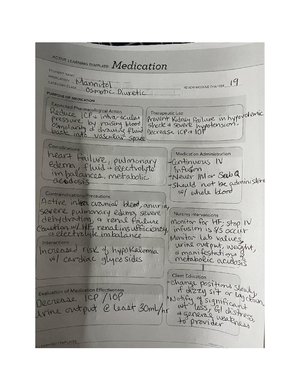 ACTIVE LEARNING TEMPLATE: Medication
STUDENT NAME
MEDICATION Mannitol
REVIEW MODULE CHAPTER 19
CATEGORY CLASS Osmotic Diuretic
PURPOSE OF MEDICATION
Expected Pharmacological Action
Reduce ICP & intraocular
pressure by raising blood
osmolarity & drawing fluid
back into vascular space
Therapeutic Use
Prevent Kidney failure in hypovolemic
shock & severe hypotension.
Decrease ICP & IOP
Complications
heart failure, pulmonary
edema, fluid + electrolyte
imbalances, metabolic
acidosis
Medication Administration
-Continuous IV
Infusion
-Never IM or SubQ
-Should not be administered
w/ whole blood
Contraindications/Precautions
Active intracranial bleed, anuria,
severe pulmonary edema, severe
dehydration, & renal failure
Caution w/ HF, renal insufficiency,
& electrolyte imbalance
Nursing Interventions
monitor for HF, stop IV
infusion if s/s occur
Monitor lab values,
urine output, weight,
& manifestations of
metabolic acidosis
Interactions
Increased risk of hypokalemia
w/ cardiac glycosides
Client Education
-Change positions slowly
if dizzy sit or lay down
-Notify of significant
wt. loss, GI distress
& general weakness
to provider
Evaluation of Medication Effectiveness
Decrease ICP / IOP
Urine output @ least 30ml/hr